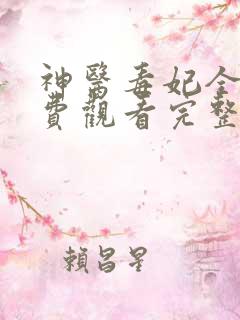 神醫毒妃全
費觀看完整
賴昌星